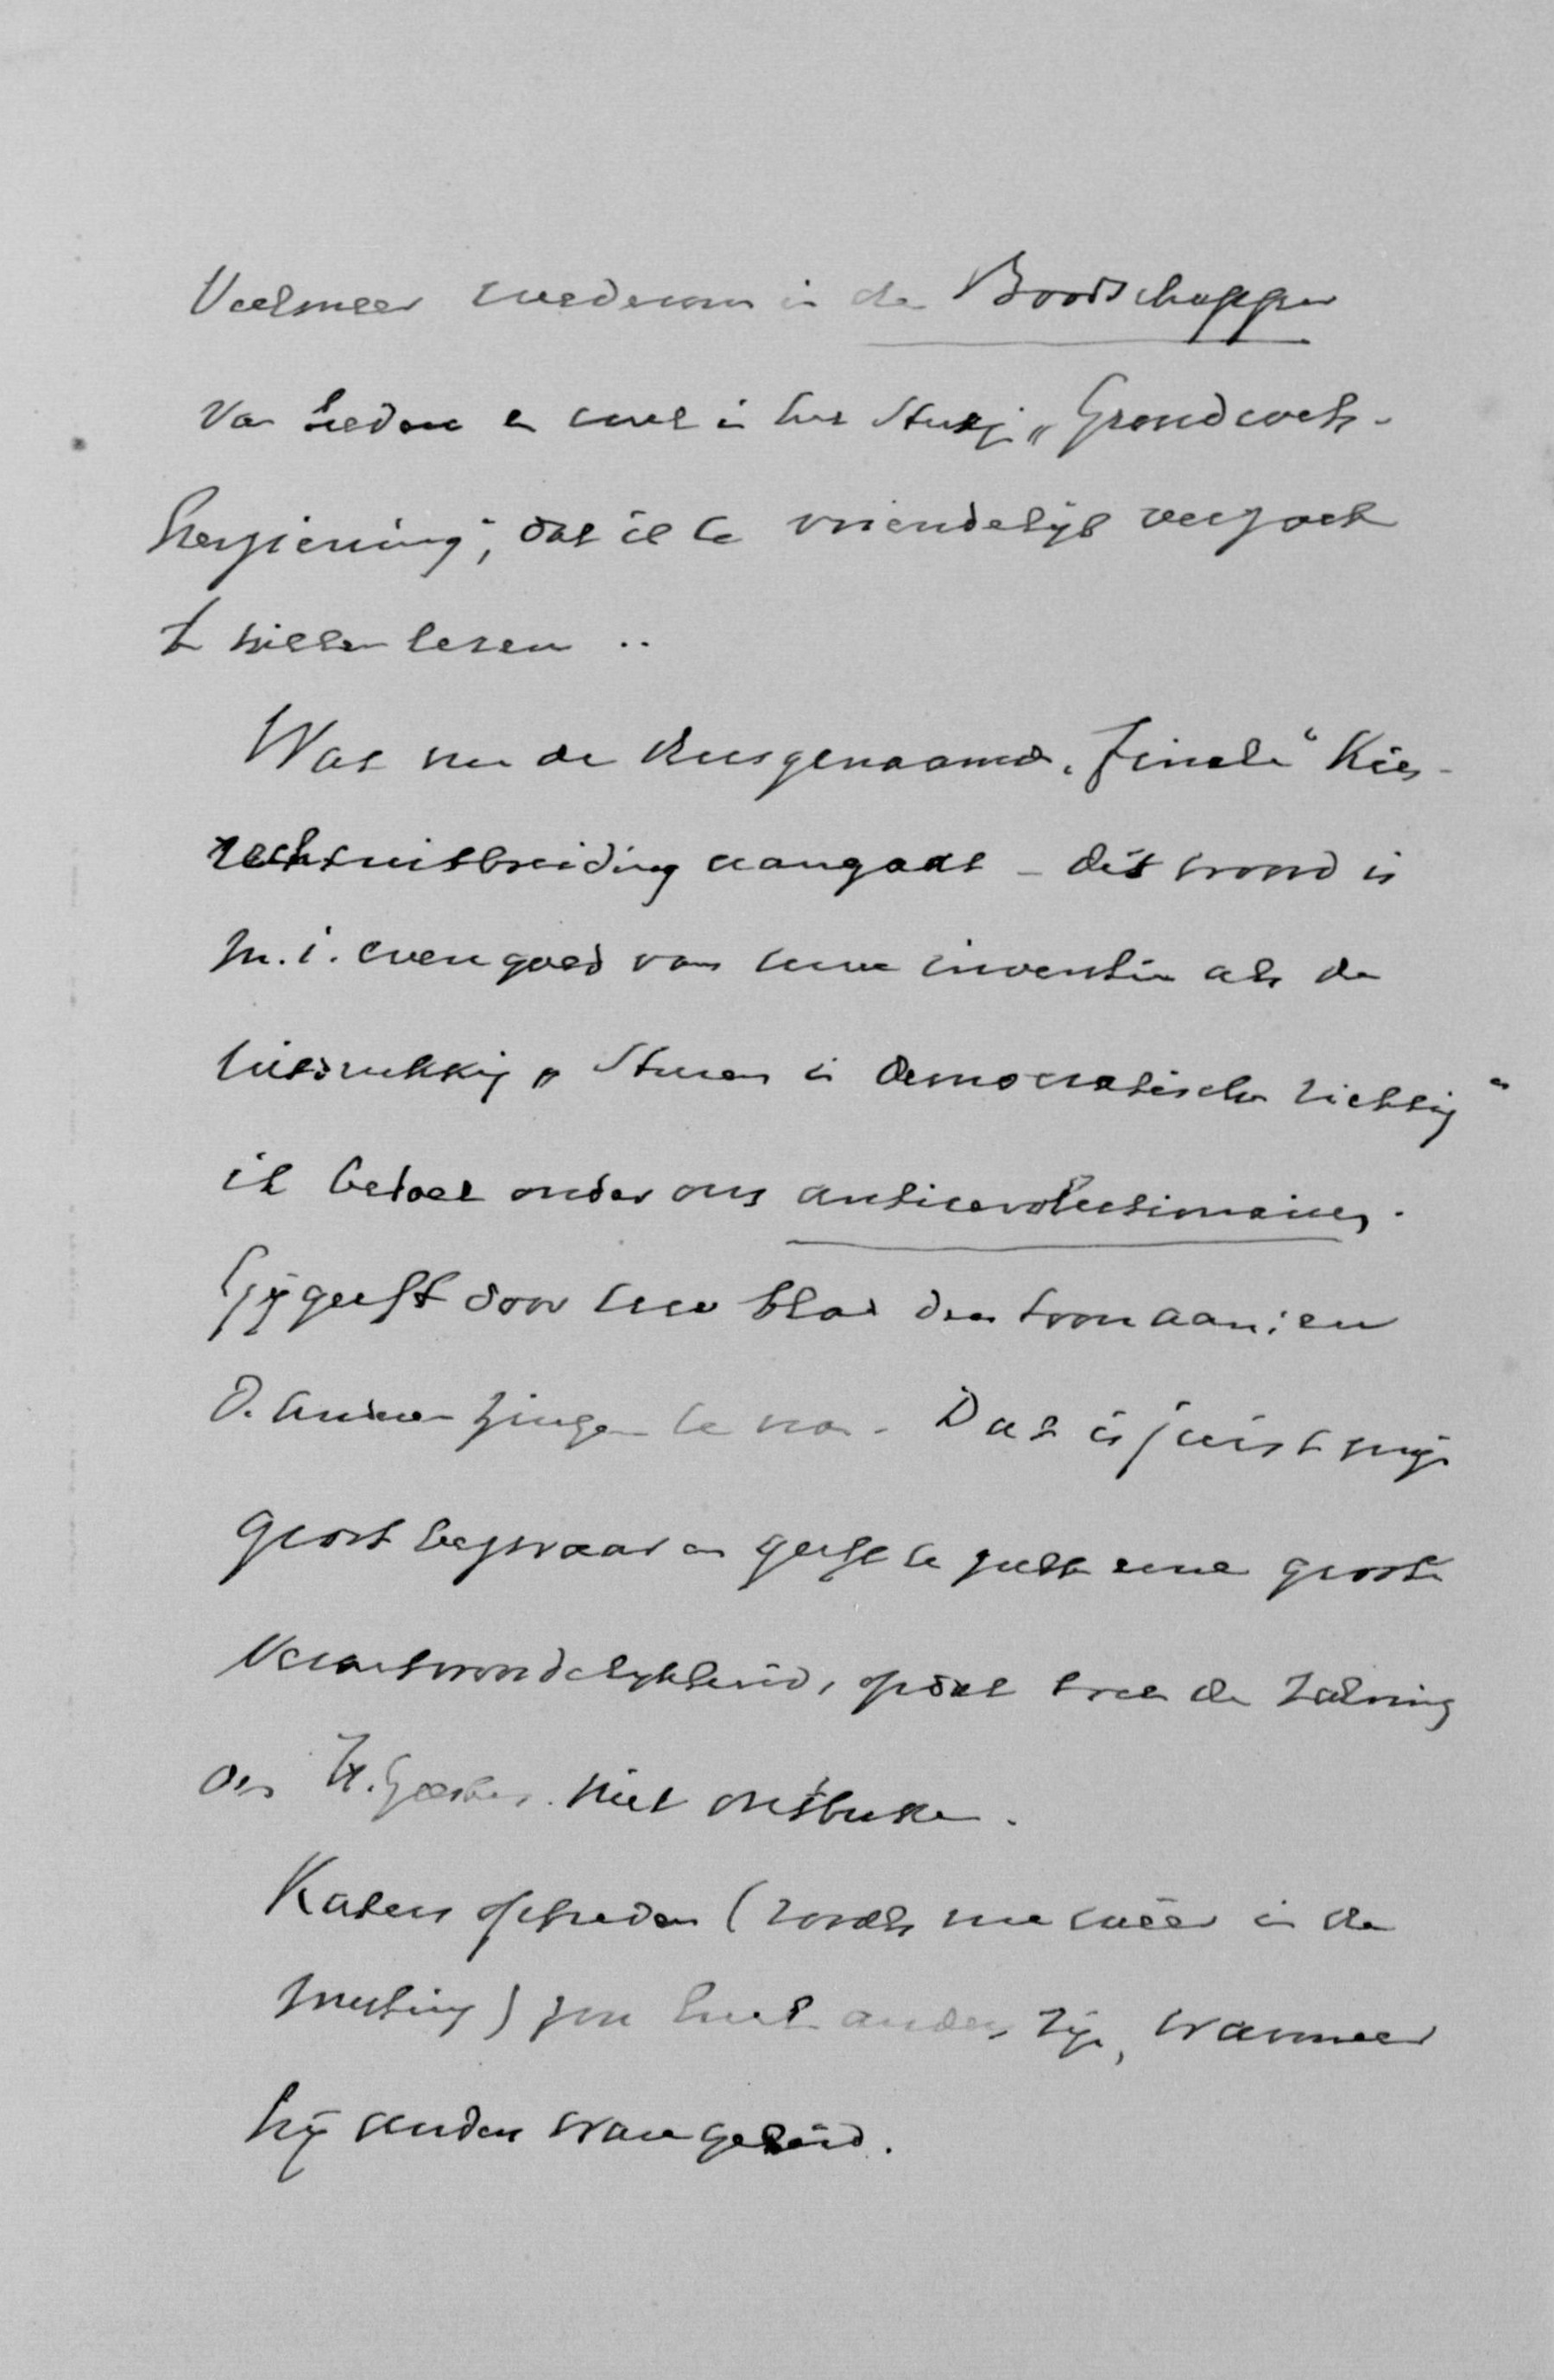 Veelmeer wederom in de Boodschapper
van heden en wel in het stukje „Grondwets-
herziening", dat ik U vriendelijk verzoek
te willen lezen ..
Wat nu de dusgenaamde „finale" Kies-
rechtsuitbreiding aangaat - dit woord is
m.i. even goed van uwe inventie als de
uitdrukking „Sturen in democratische richting"
ik bedoel onder ons antirevolutionairen.
Gij geeft door uw blad den toon aan; en
d. anderen zingen U na. Dat is juist mijn
groot bezwaar en geeft U zulk eene groote
verantwoordelijkheid, opdat toch de zalving
des H. Geestes niet ontbreke.
Katers optreden (zooals nu weêr in de
meeting) zou heel anders zijn, wanneer
hij anders waren geleid.